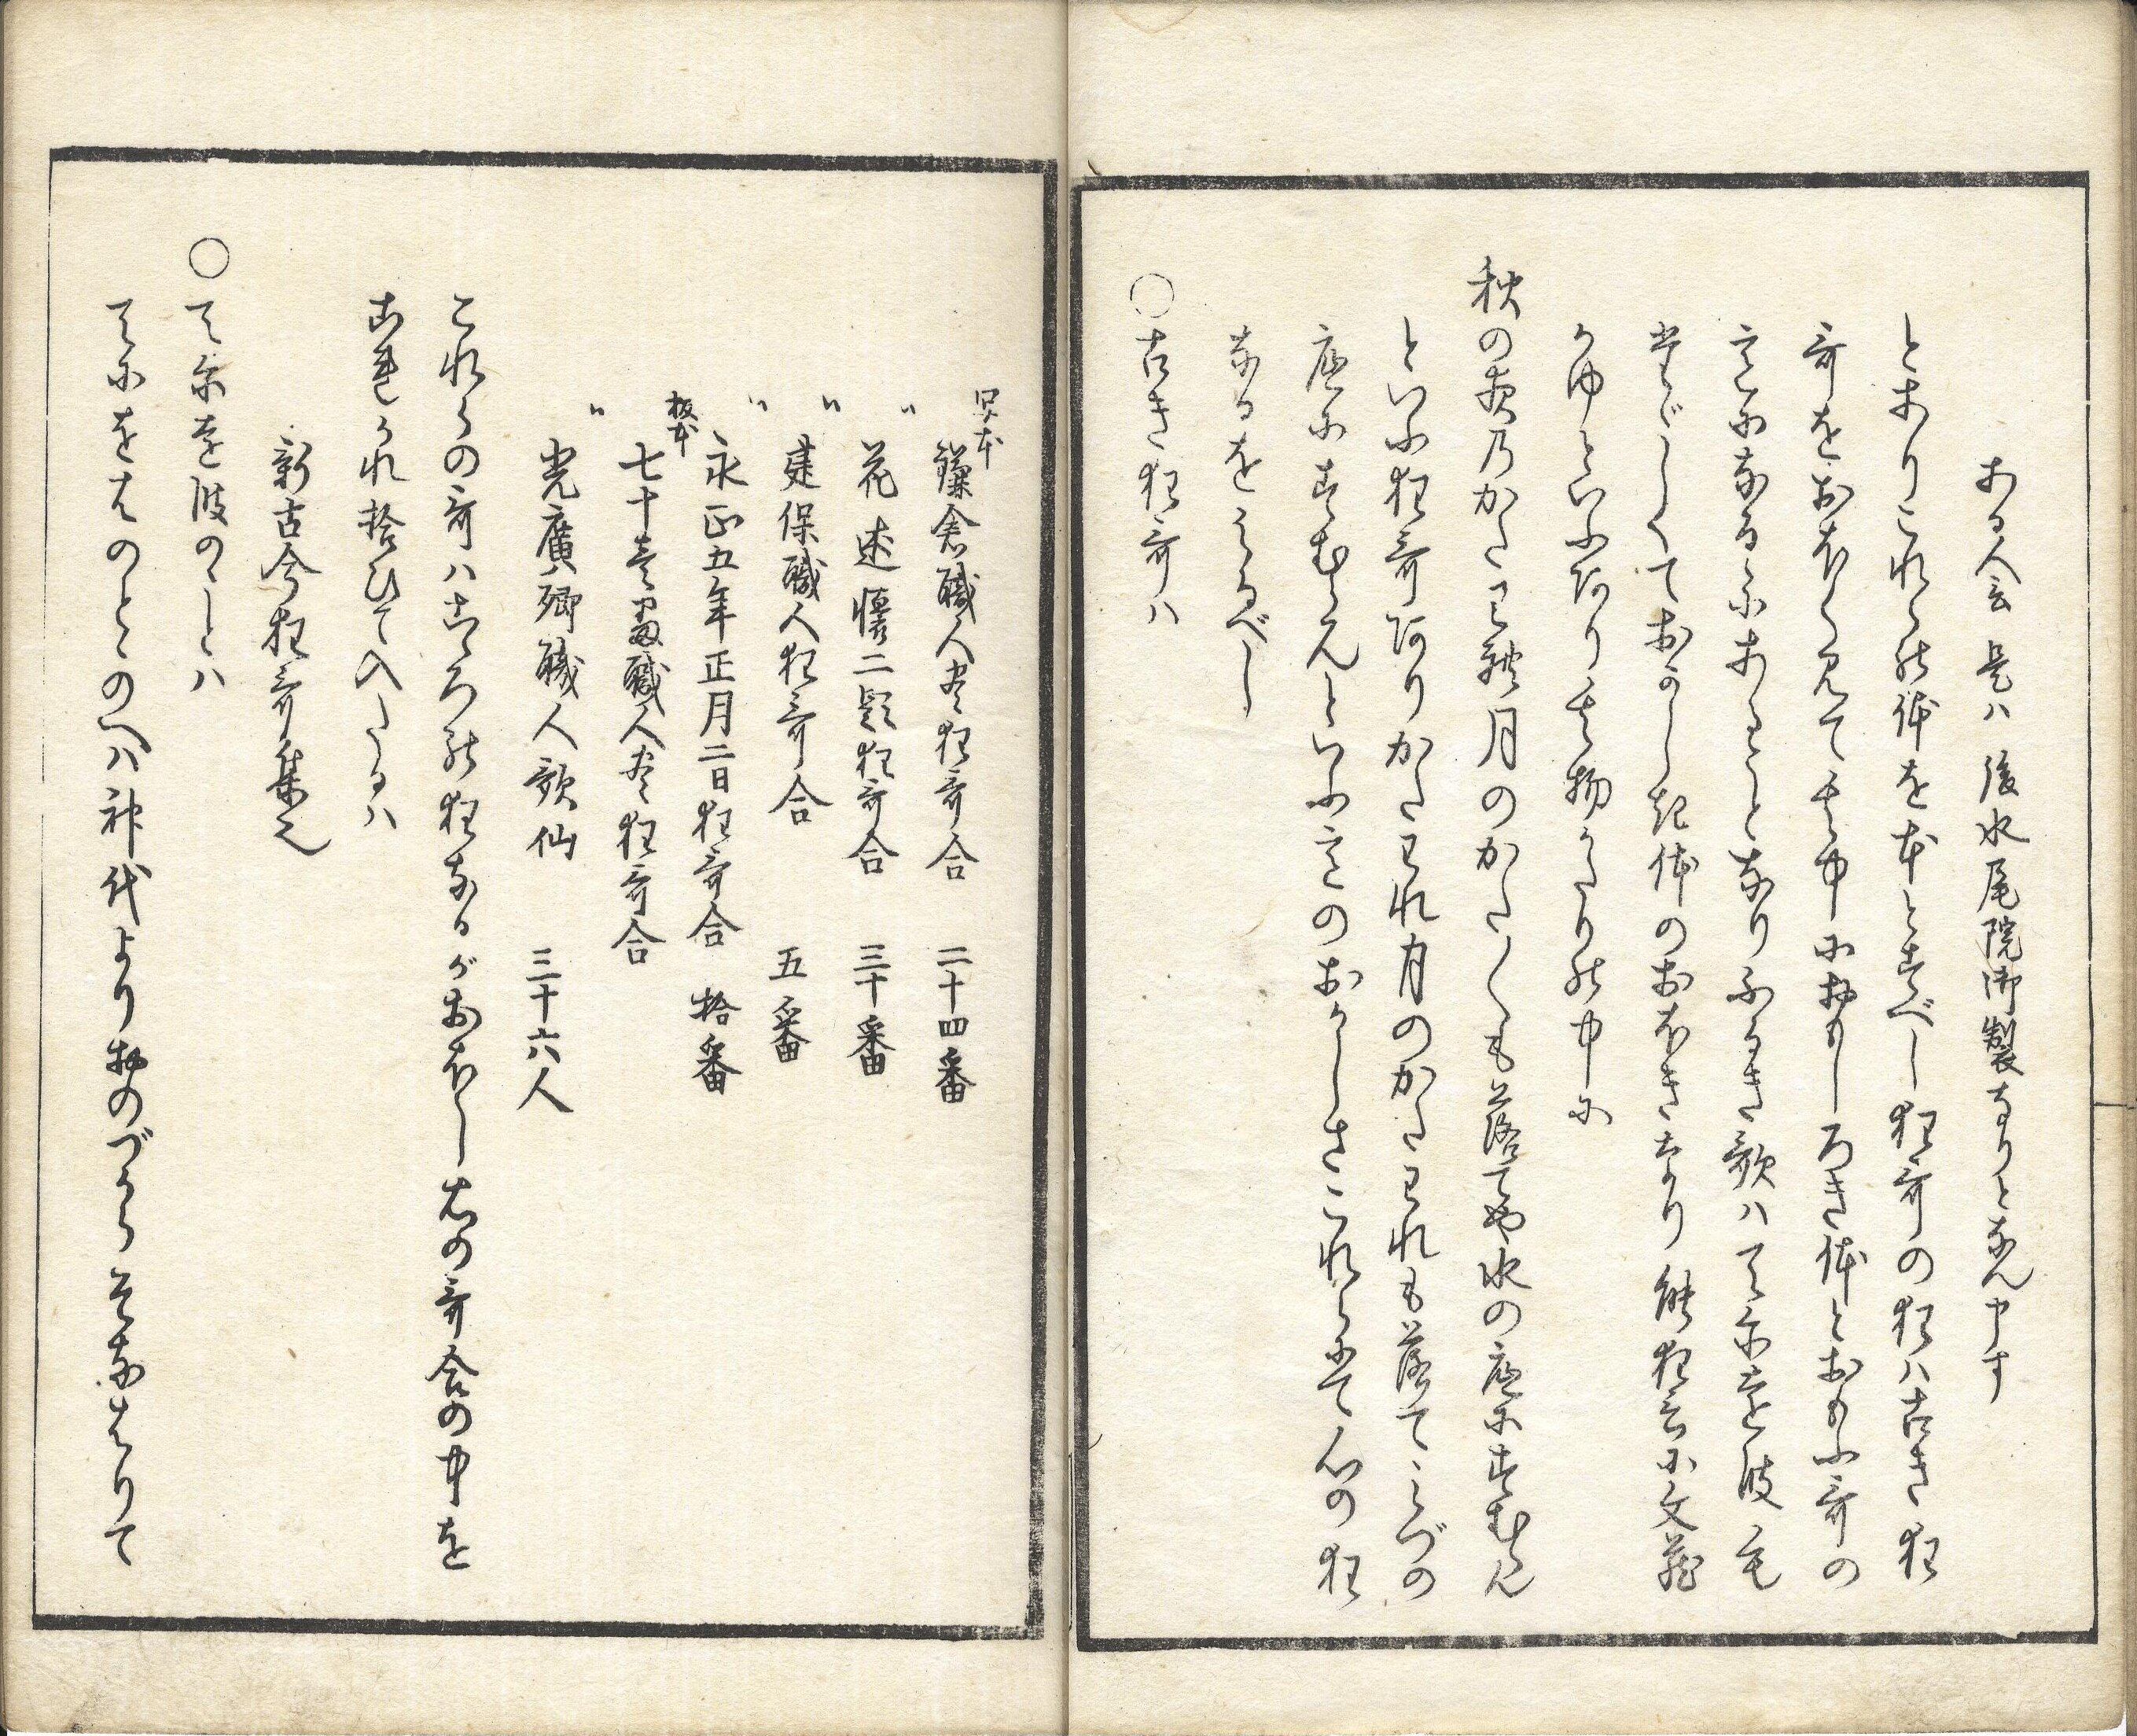 ある人云是ハ後水尾院御製なりとなん申す
とありこれらの体を本とすべし狂哥の狂ハ古き狂
哥をおほく見て其中におもしろき体とおもふ哥の
さになるらにあしと なりふるき歌ハてにをはも
ただしくておかしき体のおほきなり能狂言に文蔵
かゆといふあり其物かたりの中に
秋の夜のかたわれ月のかた〳〵も落てや水の底にすむらん
といふ狂哥ありかたわれ月のかたわれも落てみづの
底にすむらんといふさのおかしさこれらにて心の狂
なるをみるべし
○古き狂哥ハ
写本 鎌倉職人尽狂哥合 二十四番
〃 花述懐二題狂哥合 三十番
〃 建保職人狂哥合 五番
〃 永正五年正月二日狂哥合 拾番
板本 七十壱番職人尽狂哥合
〃 光廣卿職人歌仙 三十六人
これらの哥ハこころの狂なるがおほし右の哥合の中を
これかれ拾ひて入たるハ
新古今狂哥集也
○てにをはのことハ
てにをはのととのへハ神代よりおのづからそなはりて